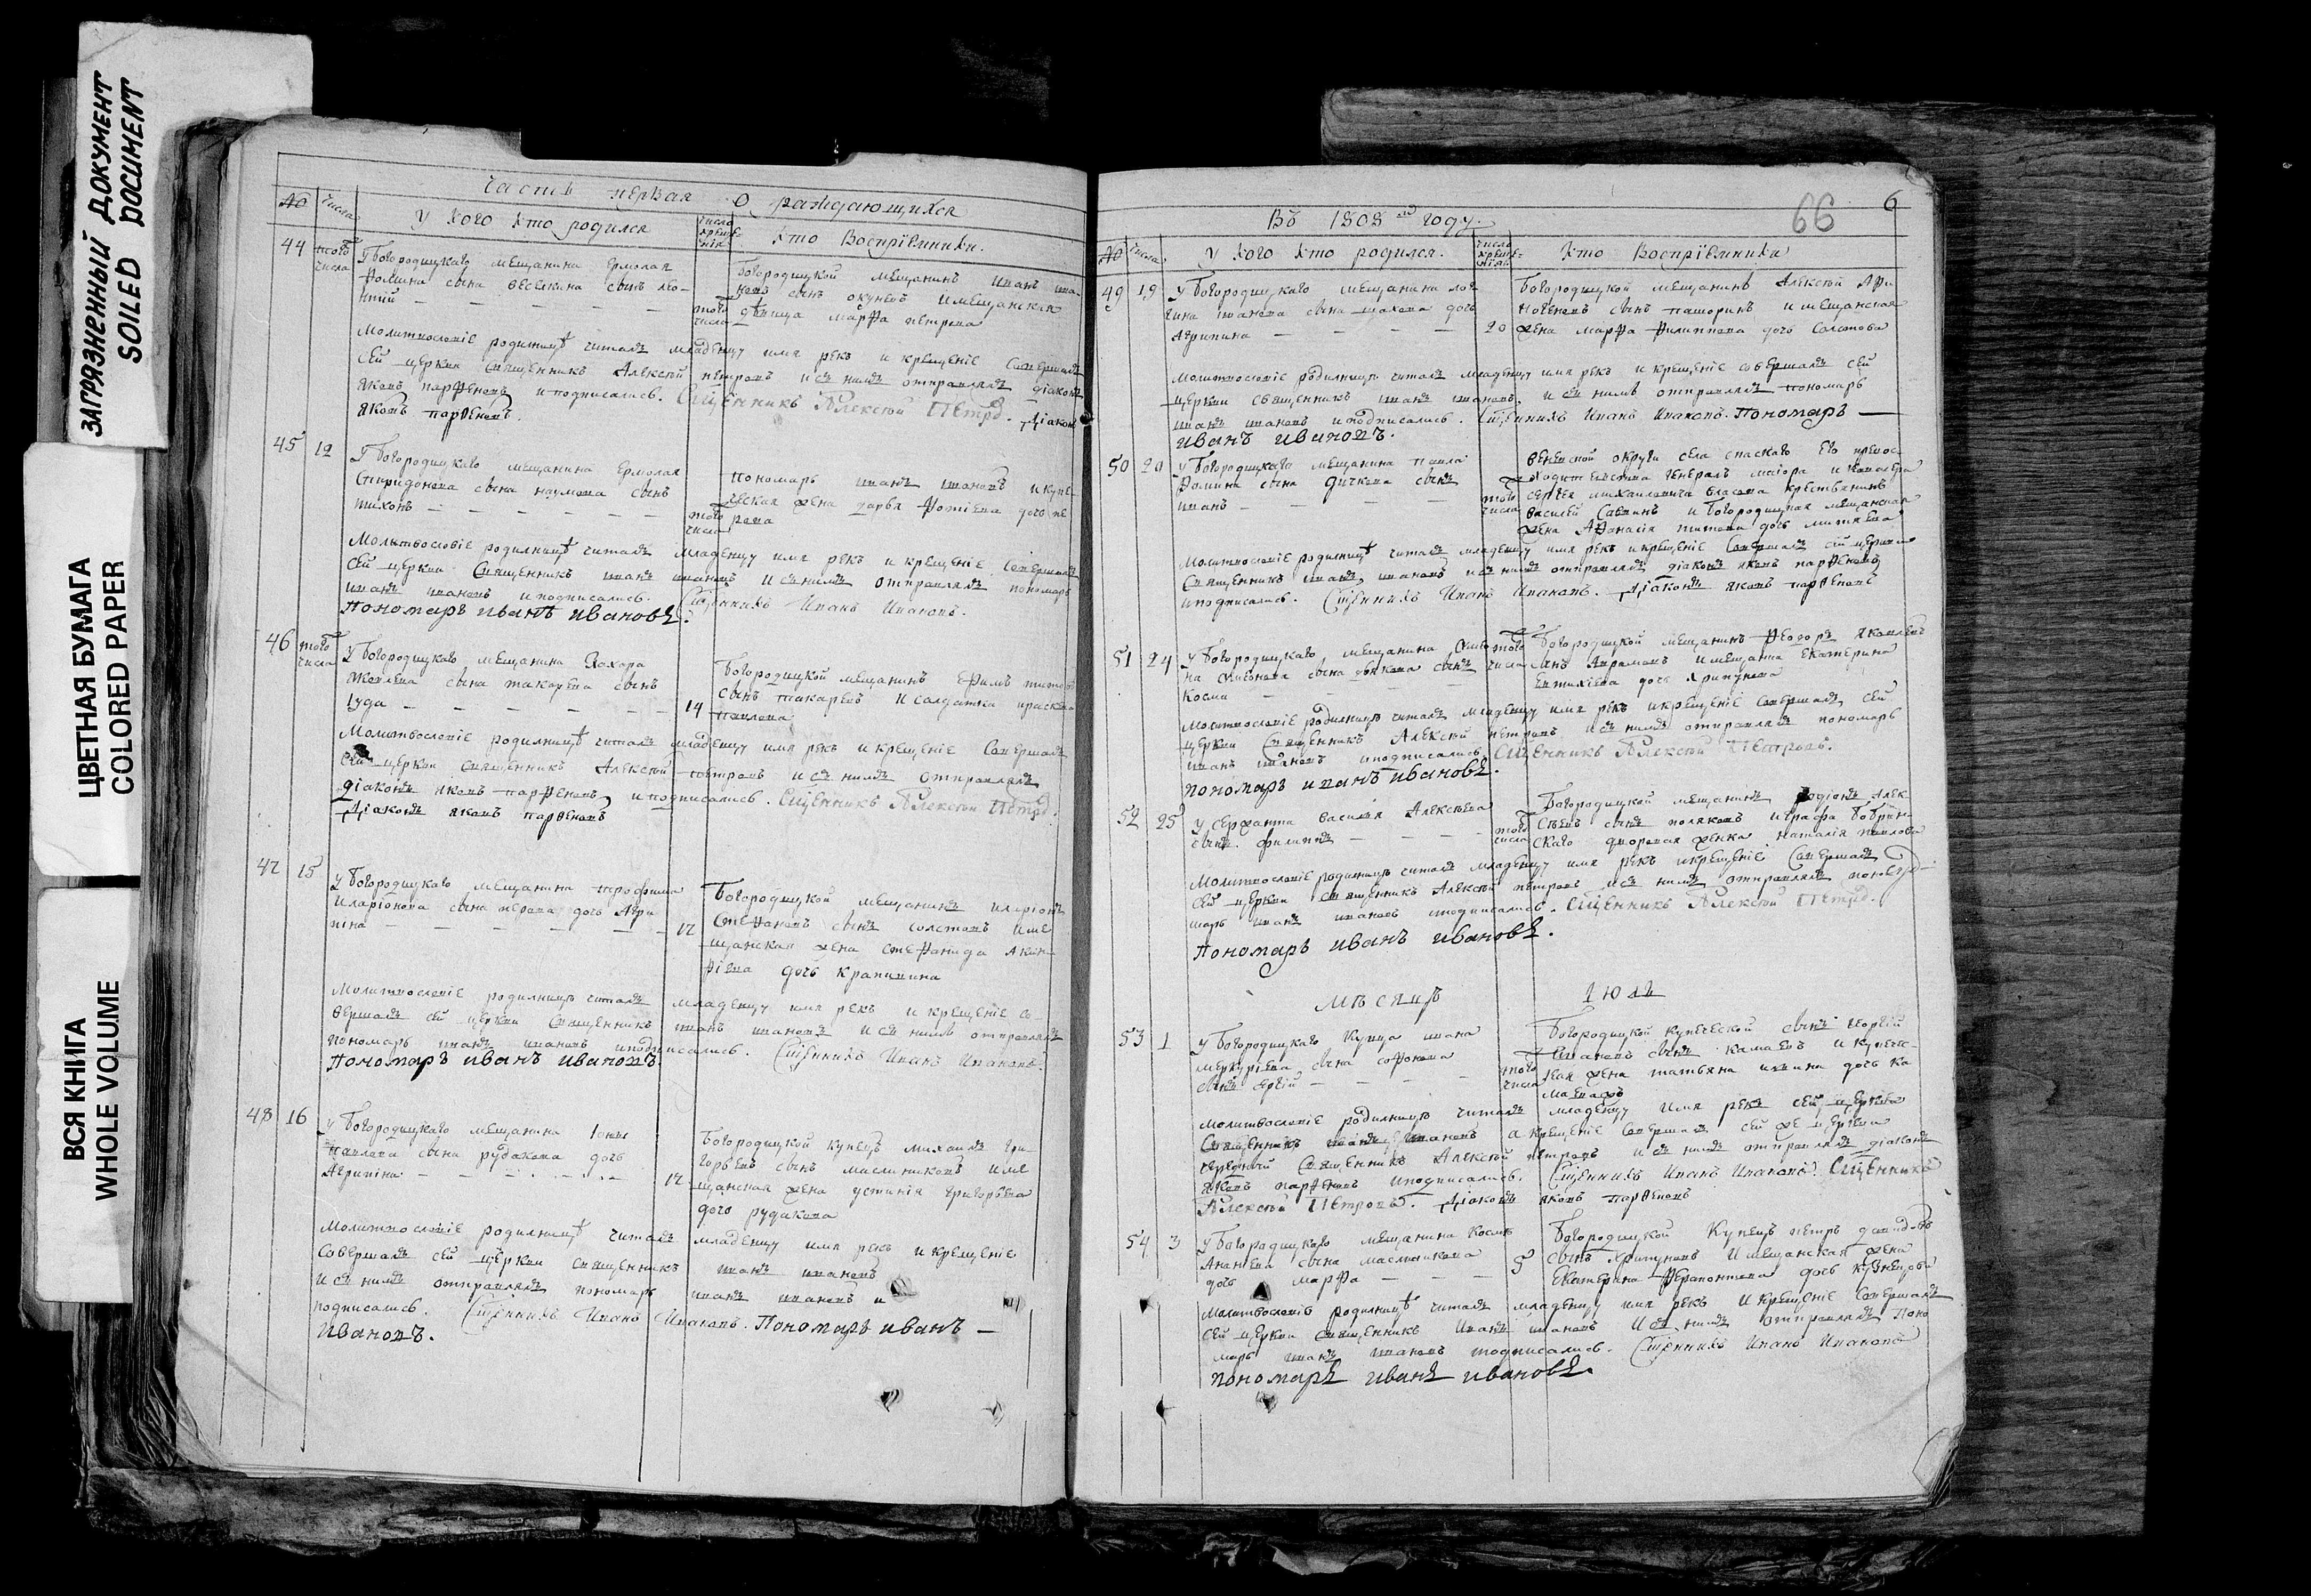 ЗАГРЯЗНЕННЫЙ ДОКУМЕНТ
SOILED DOCUMENT
ЦВЕТНАЯ БУМАГА
COLORED PAPER
ВСЯ КНИГА
WHOLE VOLUME
Часть первая О раждающихся
№ Числа У кого кто родился Число крещенія Кто Воспріемники.
44 того числа У Богородицкаго мещанина Ермолая
Фомина сына веселкина сынъ лео-
нтій
Богородицкой мещанинъ иванъ ива-
новъ сынъ окуневъ и мещанская
того числа девица марфа петрова
Молитвословіе родилницѣ читалъ младенцу имя рекъ и крещеніе совершалъ
сей церкви священникъ Алексѣй петровъ и съ нимъ отправлялъ діаконъ
яковъ парфеновъ и подписались. Сщенникъ Алексѣй Петров. Діаконъ
яковъ парѳеновъ.
45 12 У Богородицкаго мещанина Ермолая
Спиридонова сына наумова сынъ
тихонъ
того числа
пономарь иванъ ивановъ и купе-
ческая жена дарья Фотіева дочь пе
рова
Молитвословіе родилницѣ читалъ младенцу имя рекъ и крещеніе совершалъ
сей церкви священникъ иванъ ивановъ и съ нимъ отправлялъ пономарь
иванъ ивановъ и подписались. Сщенникъ Иванъ Ивановъ.
Пономаръ иванъ ивановъ.
46 того числа У Богородицкаго мещанина Захара
Яковлева сына токарева сынъ
Іуда 14
Богородицкой мещанинъ Ефимъ титовъ
сынъ токаревъ и солдатка праскева
павлова
Молитвословіе родилницѣ читалъ младенцу имя рекъ и крещеніе совершалъ
сей церкви священникъ Алексѣй петровъ и съ нимъ отправлялъ
діаконъ яковъ парфеновъ и подписались. Сщенникъ Алексѣй Петров.
Діаконъ яковъ парѳеновъ
47 15 У Богородицкаго мещанина трофима
иларіонова сына перова дочь Агри
пина 17
Богородицкой мещанинъ иларіонъ
Стефановъ сынъ солотовъ и ме
щанская жена стефанида Акин-
фіева дочь крапивина
Молитвословіе родилницѣ читалъ младенцу имя рекъ и крещеніе со-
вершалъ сей церкви священникъ иванъ ивановъ и съ нимъ отправлялъ
пономарь иванъ ивановъ и подписались. Сщенникъ Иванъ Ивановъ.
Пономаръ иванъ ивановъ.
48 16 У Богородицкаго мещанина Іоны
павлова сына рудакова дочь
Агрипина 17
Богородицкой купецъ михаилъ гри-
горьевъ сынъ маслениковъ и ме
щанская жена устинія григорьева
дочь рудакова
Молитвословіе родилницѣ читалъ младенцу имя рекъ и крещеніе
совершалъ сей церкви священникъ иванъ ивановъ
и съ нимъ отправлялъ пономарь иванъ ивановъ и
подписались. Сщенникъ Иванъ Ивановъ. Пономаръ иванъ
ивановъ.
66 6
Въ 1808мъ году.
№ Числа У кого кто родился. Число крещенія. Кто Воспріемники
49 19 У Богородицкаго мещанина лог-
гина иванова сына дочь
Агрипина 20
Богородицкой мещанинъ Алексѣй Ари
ноченовъ сынъ и мещанская
жена марфа Филиппова дочь Солотова
Молитвословіе родилницѣ читалъ младенцу имя рекъ и крещеніе совершалъ сей
церкви священникъ иванъ ивановъ. и съ нимъ отправлялъ пономарь
иванъ ивановъ и подписались. Сщенникъ Иванъ Ивановъ. Пономаръ
иванъ ивановъ.
50 20 У Богородицкаго мещанина павла
Фомина сына дичкова сынъ
иванъ
того числа
веневской округи села спаскаго его превос-
ходительства генералъ маіора и кавалера
сергея михаиловича власова крестьянинъ
василей Савинъ и богородицкая мещанская
жена Афанасія титова дочь митяева
Молитвословіе родилницѣ читалъ младенцу имя рекъ и крещеніе совершалъ сей церкви
священникъ иванъ ивановъ и съ нимъ отправлялъ діаконъ яковъ парфеновъ
и подписались. Сщенникъ Иванъ Ивановъ. Діаконъ яковъ парѳеновъ
51 24 У Богородицкаго мещанина Симео
на Симеонова сына быкова сынъ
Косма
того числа
Богородицкой мещанинъ Ѳеодоръ яковлевъ
сынъ Аврамовъ и мещанка Екатерина
Евтихіева дочь хрипунова
Молитвословіе родилницѣ читалъ младенцу имя рекъ и крещеніе совершалъ сей
церкви священникъ Алексѣй петровъ и съ нимъ отправлялъ пономарь
иванъ ивановъ и подписались. Сщенникъ Алексѣй Петровъ.
пономаръ иванъ ивановъ.
52 25 У сержанта василія Алексѣева
сынъ филиппъ
того числа
Богородицкой мещанинъ родіонъ Алек
сѣевъ сынъ поляковъ и графа бобрин-
скаго дворовая женка наталія павлова
Молитвословіе родилницѣ читалъ младенцу имя рекъ и крещеніе совершалъ
сей церкви священникъ Алексѣй петровъ и съ нимъ отправлялъ поно-
марь иванъ ивановъ и подписались. Сщенникъ Алексѣй Петров.
Пономаръ иванъ ивановъ.
мѣсяцъ Іюль
53 1 У Богородицкаго Купца ивана
меркуріева сына софонова
сынъ
того числа
Богородицкой купеческой сынъ георгій
Ивановъ сынъ камаевъ и купечес-
кая жена татьяна ильина дочь ка
маева
Молитвословіе родилницѣ читалъ младенцу имя рекъ сей церкви
Священникъ иванъ ивановъ а крещеніе совершалъ сей же церкви
чередной священникъ Алексѣй петровъ и съ нимъ отправлялъ діаконъ
яковъ парфеновъ и подписались. Сщенникъ Иванъ Ивановъ. Сщенникъ
Алексѣй Петровъ. Діаконъ яковъ парѳеновъ
54 3 У Богородицкаго мещанина Космы
Ананіева сына масленикова
дочь марфа 5
Богородицкой Купецъ петръ давидовъ
сынъ хрипуновъ и мещанская жена
Екатерина Ферапонтова дочь кузнецова
Молитвословіе родилницѣ читалъ младенцу имя рекъ и крещеніе совершалъ
сей церкви священникъ Иванъ ивановъ и съ нимъ отправлялъ поно
марь иванъ ивановъ и подписались. Сщенникъ Иванъ Ивановъ
пономаръ иванъ ивановъ.